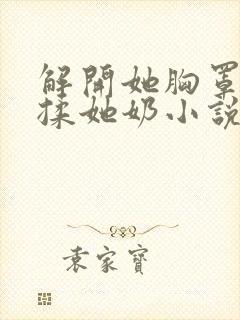 解開她胸罩
揉她奶小說
袁家寶